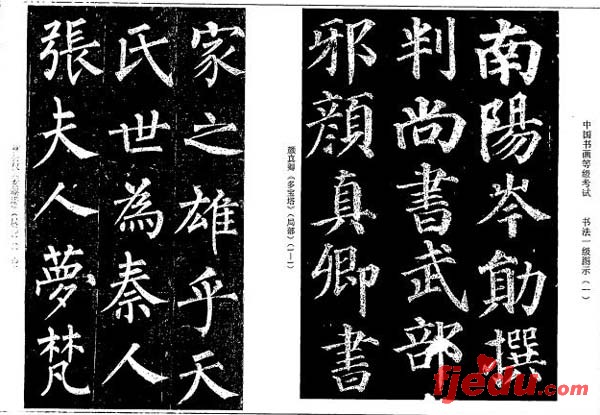 中国书画等级考试 书法一级图示(一)
南陽岑勛撰
判尚書武部
邪顏真卿書
颜真卿《多宝塔》(局部)(1-1)
家之雄乎天
氏世為秦人
張夫人夢梵
fjedu.com